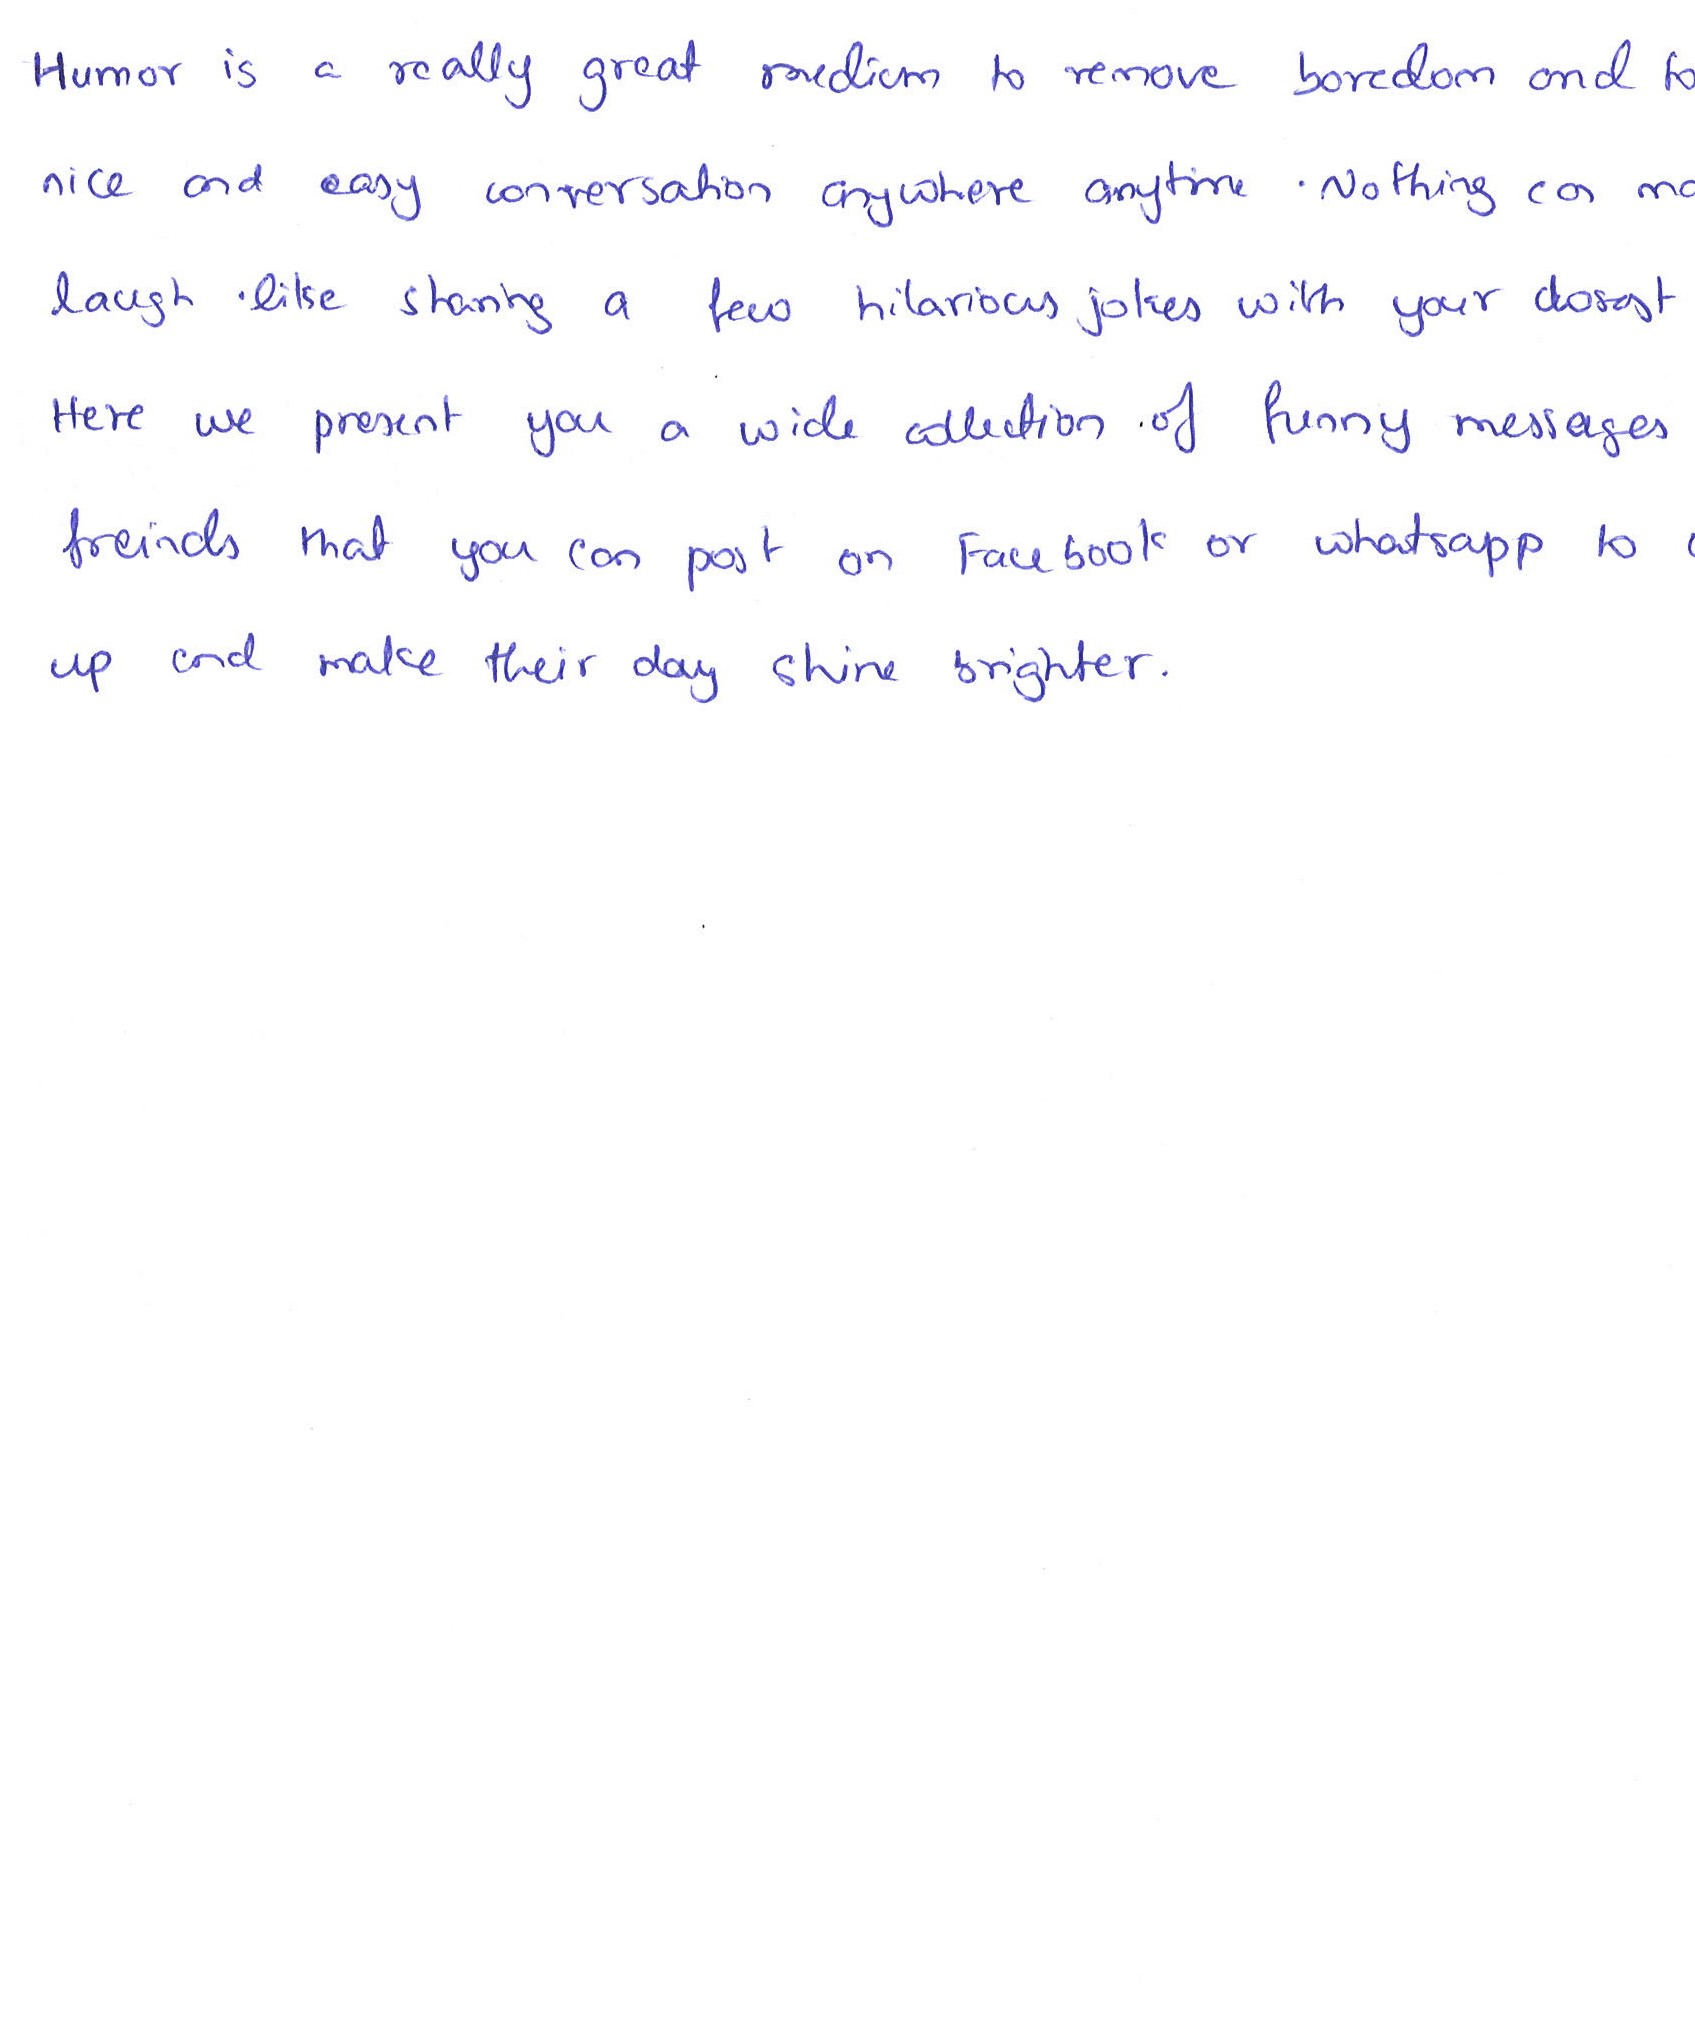 Humor is a really great medium to remove boredom and to
nice and easy conversation anywhere anytime . Nothing can
laugh like sharing a few hilarious jokes with your closest
Here we present you a wide collection of funny messages
freinds that you can post on Facebook or whatsapp to
up and make their day shine brighter.